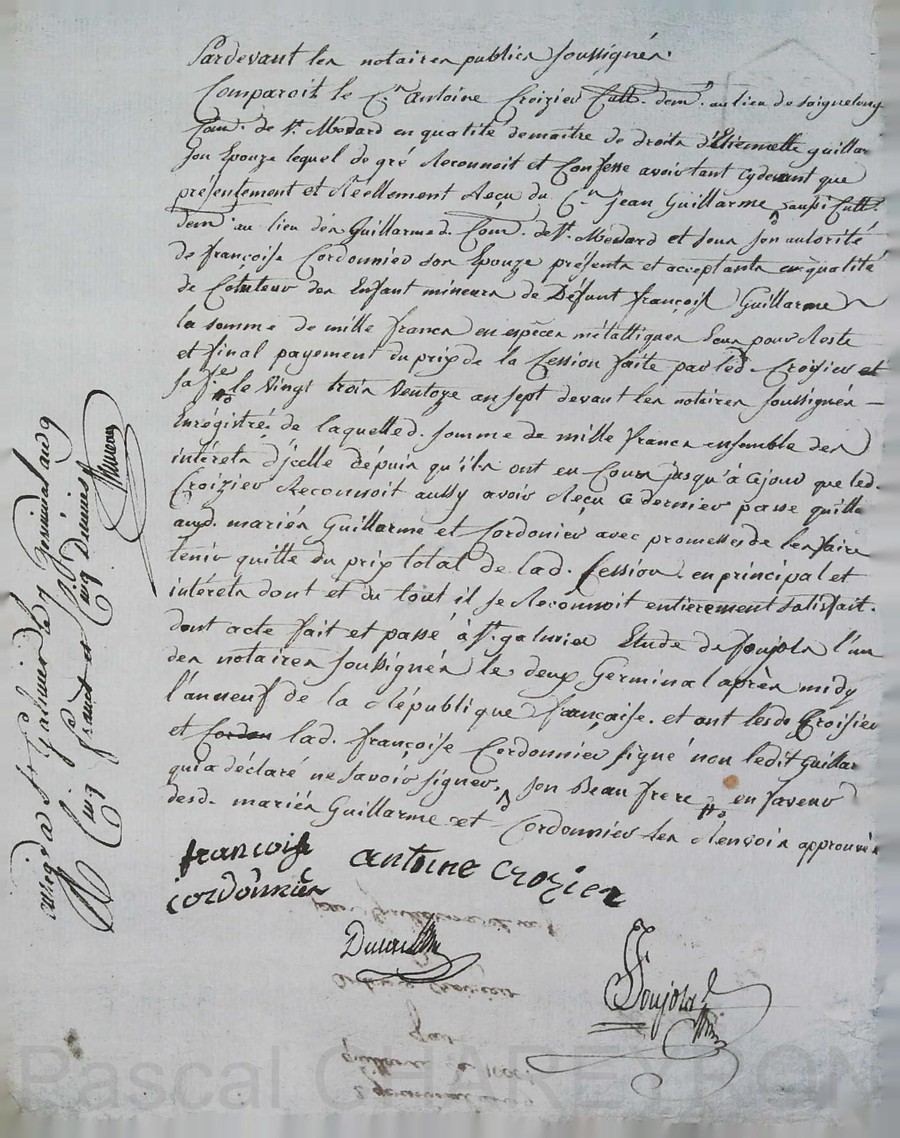 Pardevant les notaires publics soussignés
Comparoit le C.en antoine Croizier Cult. dem.t au lieu de Soigneloug
Com.e de St. Medard en qualité de maitre de droits d'Etiennette guillar
son Epouze lequel de gré Reconnoit et Confesse avoir tant cydevant que
présentement et Réellement Reçu du C.en jean Guillarme, aussi Cult.
dem.t au lieu des Guillarmed. Com.e de St. Medard et sous son autorité
de françoise Cordonnier son Epouze présents et acceptants en qualité
de Cotuteur des Enfant mineurs de Défunt françois Guillarme
la somme de mille francs en espèces métalliques Sous pour Reste
et final payement du prix de la Cession faite par led. Croizier et
sa f.e le vingt trois Ventoze an sept devant les notaires soussignés —
Enrégistrée de laquelled. somme de mille francs ensemble des
intérets d'jcelle depuis qu'ils ont eu Cours jusqu'à cejour que led.
Croizier Reconnoit aussy avoir Reçu ce dernier passe quitte
auxd. mariés Guillarme et Cordonier avec promesses de les faire
tenir quitte du prix total de lad. Cession en principal et
intérets dont et du tout il se Reconnoit entierement satisfait.
dont acte fait et passé à St. galmier Etude de Soujols l'un
des notaires soussignés le deux Germinal après midy
l'an neuf de la République française. et ont lesd. Croisier
et Cordon lad. françoise Cordonnier signé non ledit Guillar
qui a déclaré ne savoir signer, son Beau frere en faveur
desd. mariés Guillarme et Cordonnier les Renvois approuvés
françoise
cordonnier
antoine crozier
Soujols
St Galmier le 7 Germinal an 9
Cinq francs et Cinq Decimes
Pascal CHAREYRON